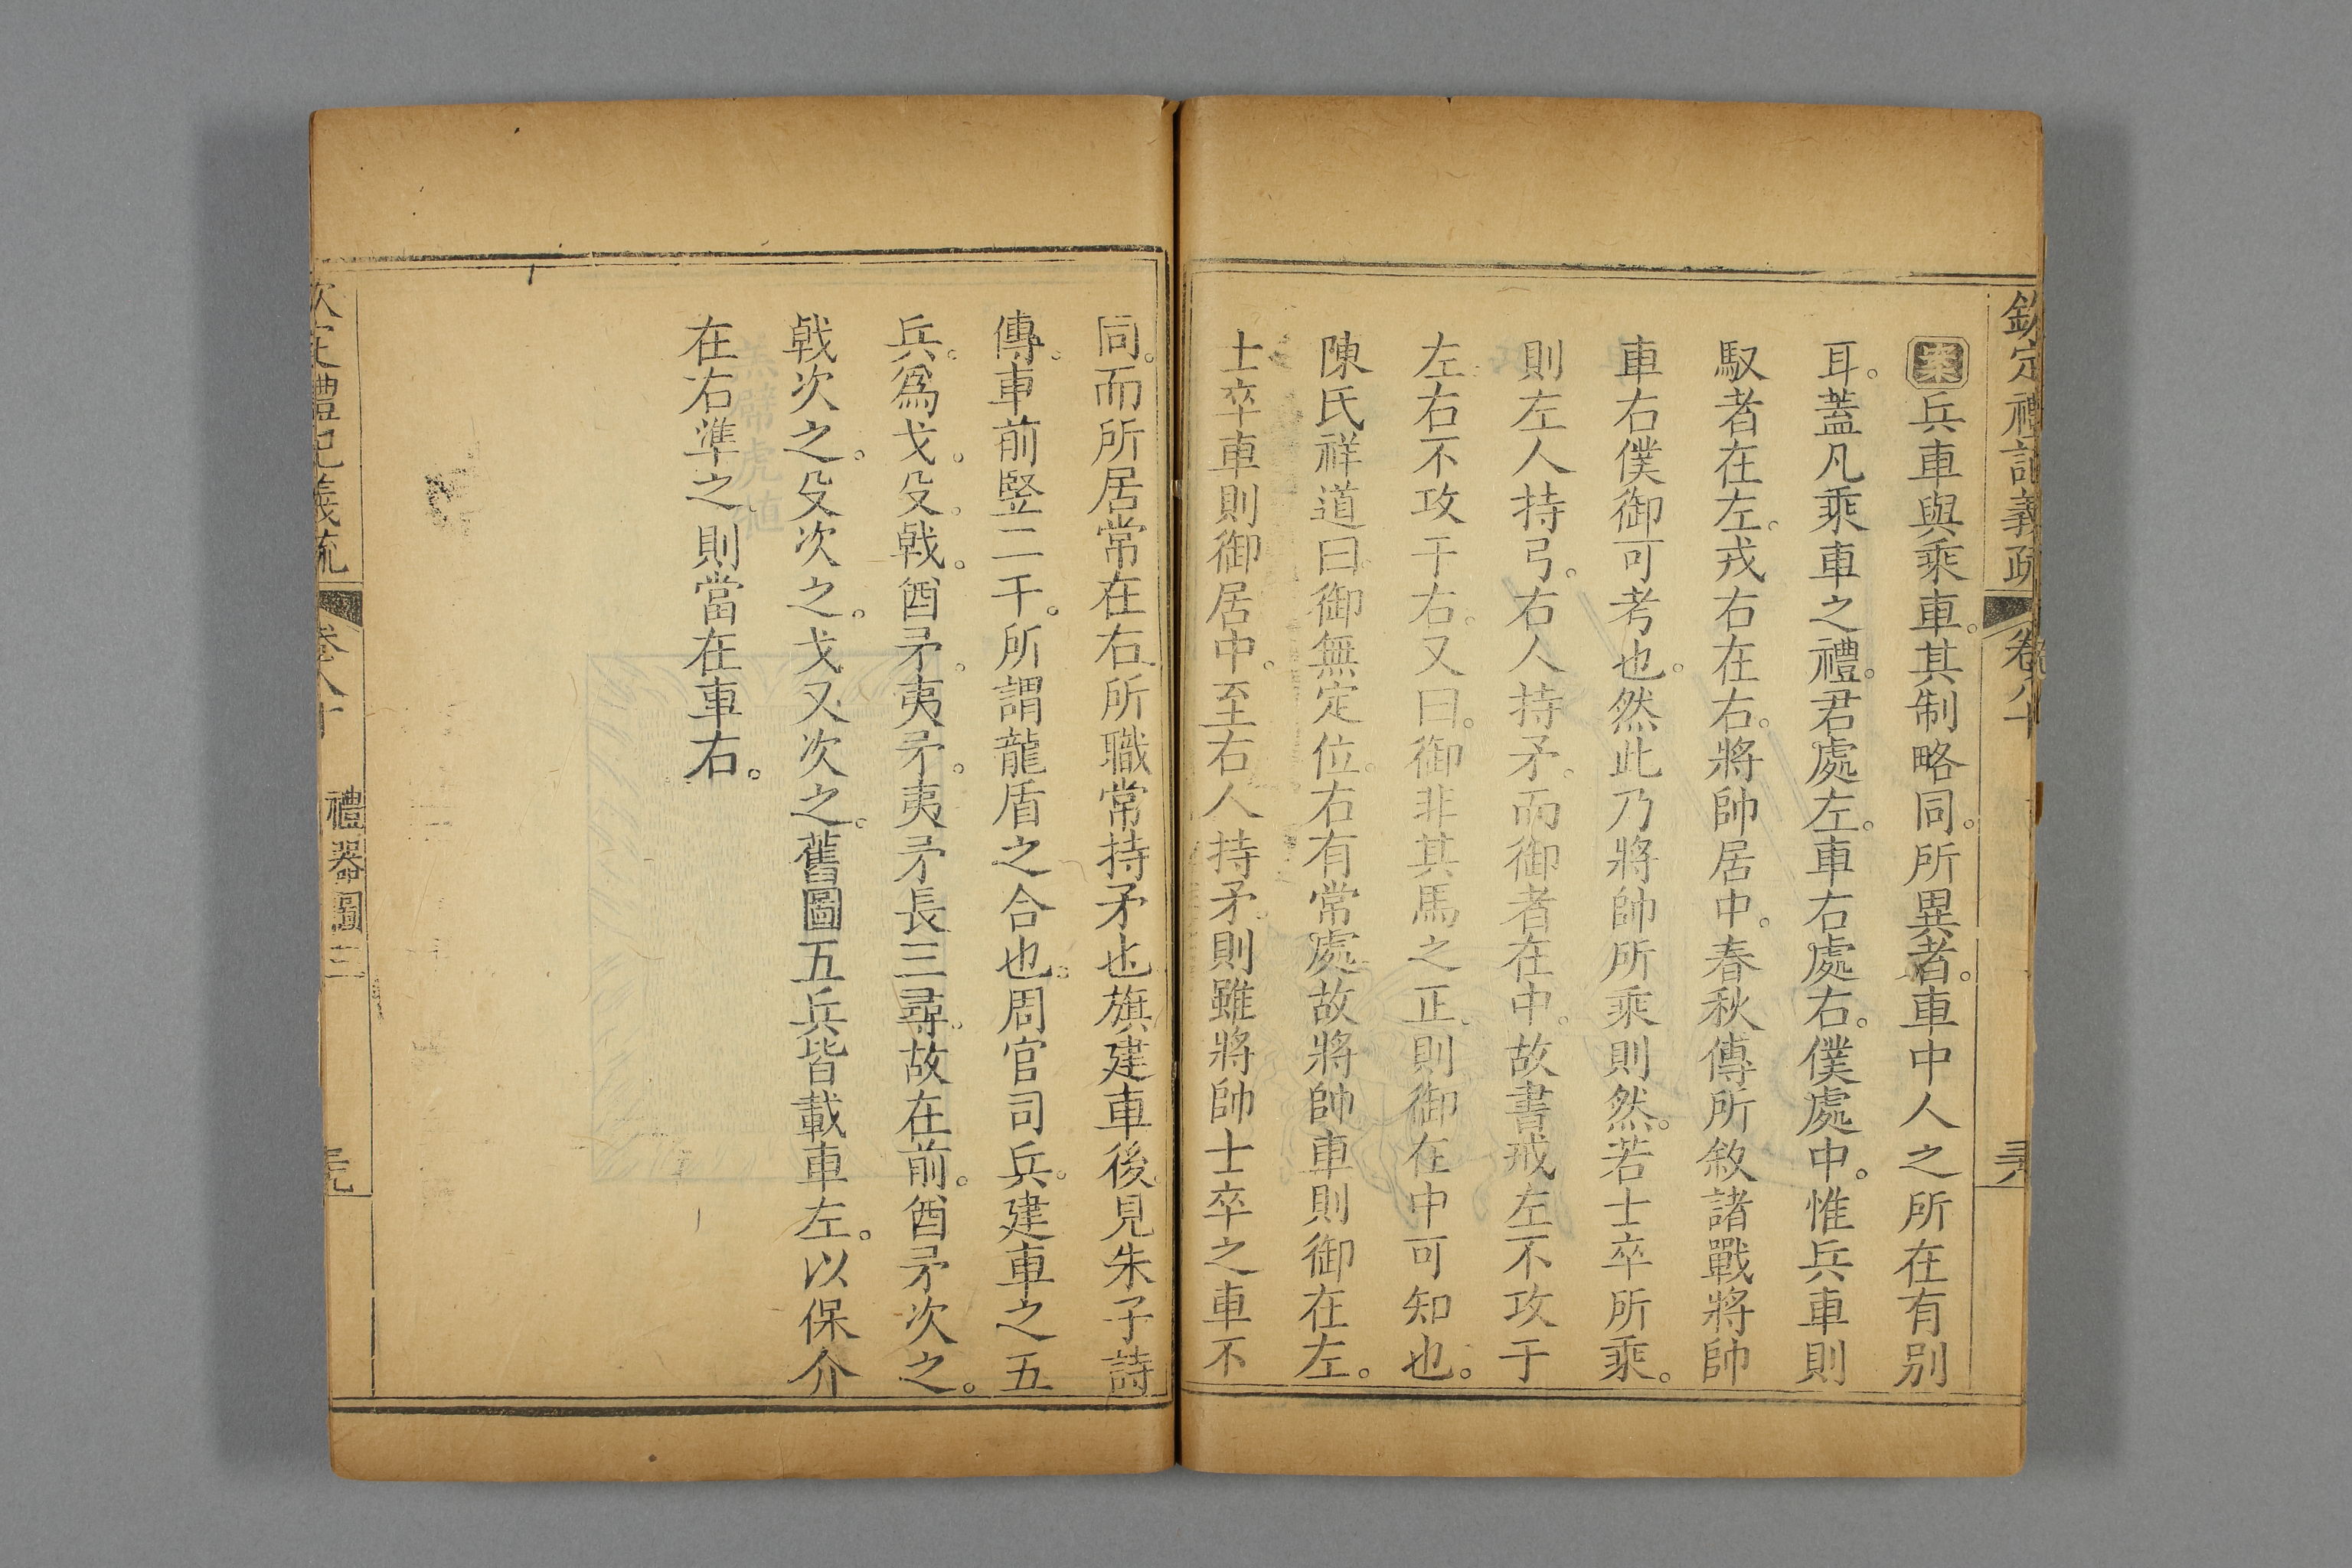 欽定禮記義疏 卷八十
案兵車與乘車。其制略同。所異者。車中人之所在有別
耳。蓋凡乘車之禮。君處左。車右處右。僕處中。惟兵車則
馭者在左。戎右在右。將帥居中。春秋傳所敘諸戰將帥
車右僕御可考也。然此乃將帥所乘則然。若士卒所乘。
則左人持弓。右人持矛。而御者在中。故書戒左不攻于
左右不攻于右。又曰。御非其馬之正。則御在中可知也。
陳氏祥道曰。御無定位。右有常處故將帥車則御在左。
士卒車則御居中。至右人持矛。則雖將帥士卒之車不
同。而所居常在右。所職常持矛也旗建車後。見朱子詩
傳。車前竪二干。所謂龍盾之合也。周官司兵。建車之五
兵。爲戈。殳。戟。酋矛。夷矛。夷矛長三尋。故在前。酋矛次之。
戟次之。殳次之。戈又次之。舊圖五兵皆載車左。以保介
在右準之。則當在車右。
欽定禮記義疏 卷八十 禮器圖三